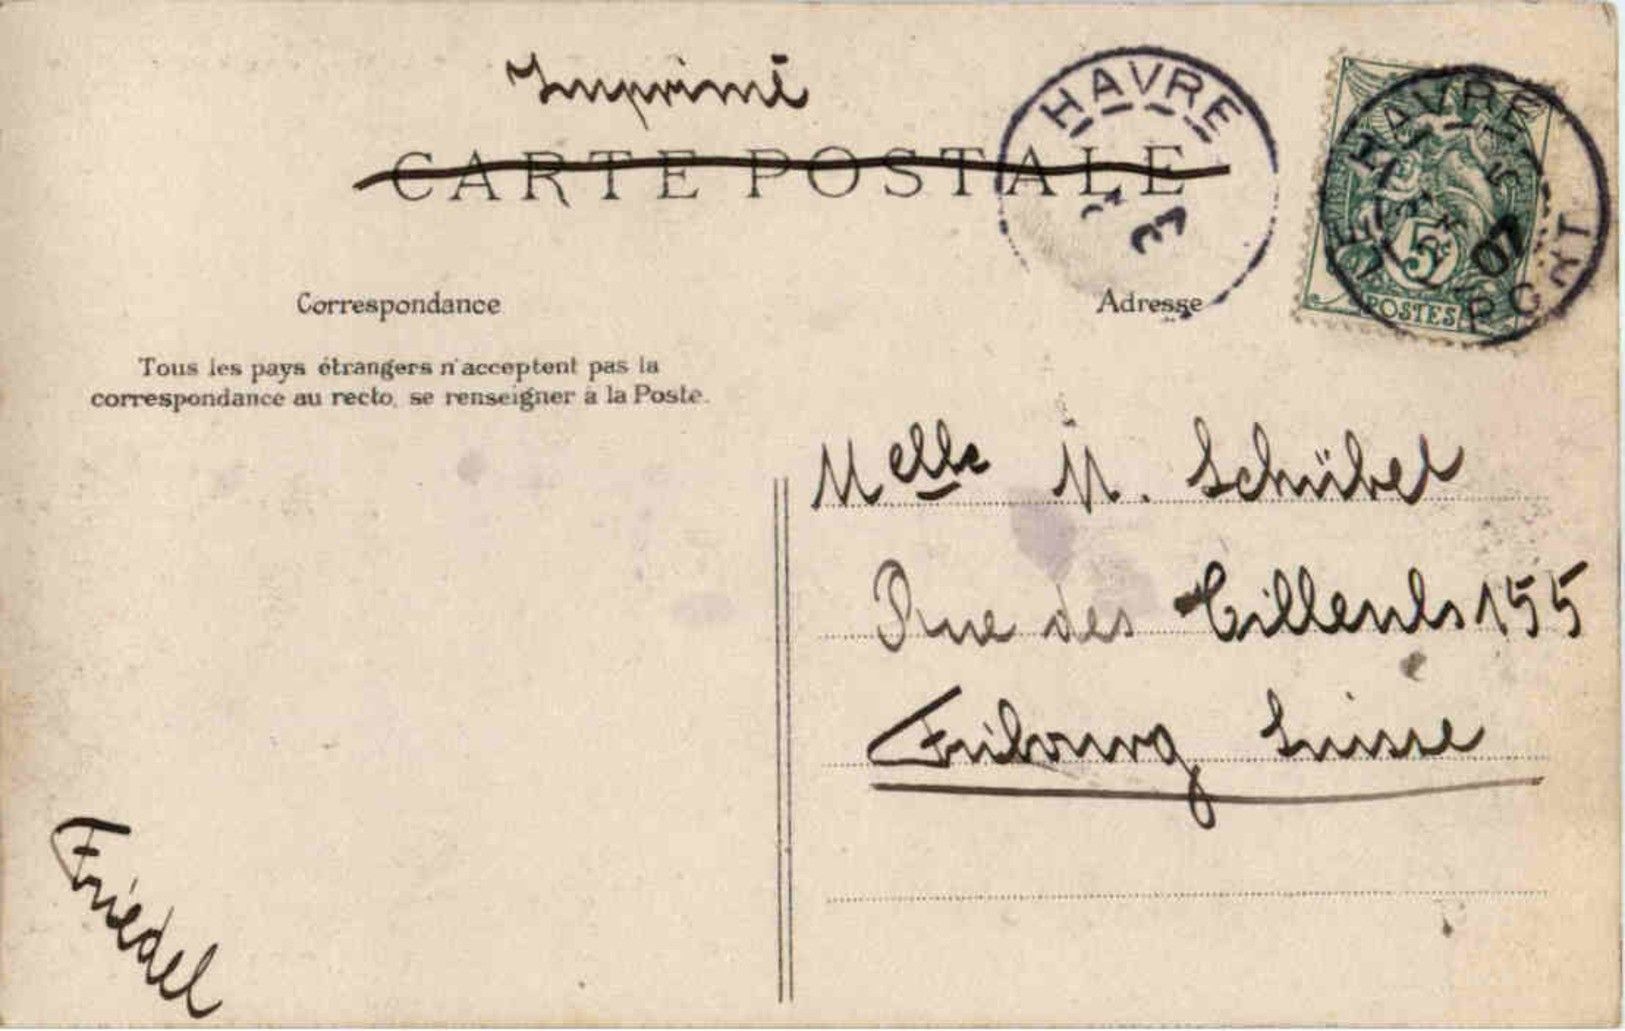 Imprimé
CARTE POSTALE
HAVRE
HAVRE
07
PORT
5
POSTES
Correspondance
Adresse
Tous les pays étrangers n'acceptent pas la
correspondance au recto, se renseigner à la Poste.
Melle M. Schübel
Rue des Tilleuls 155
Fribourg Suisse
Friedel